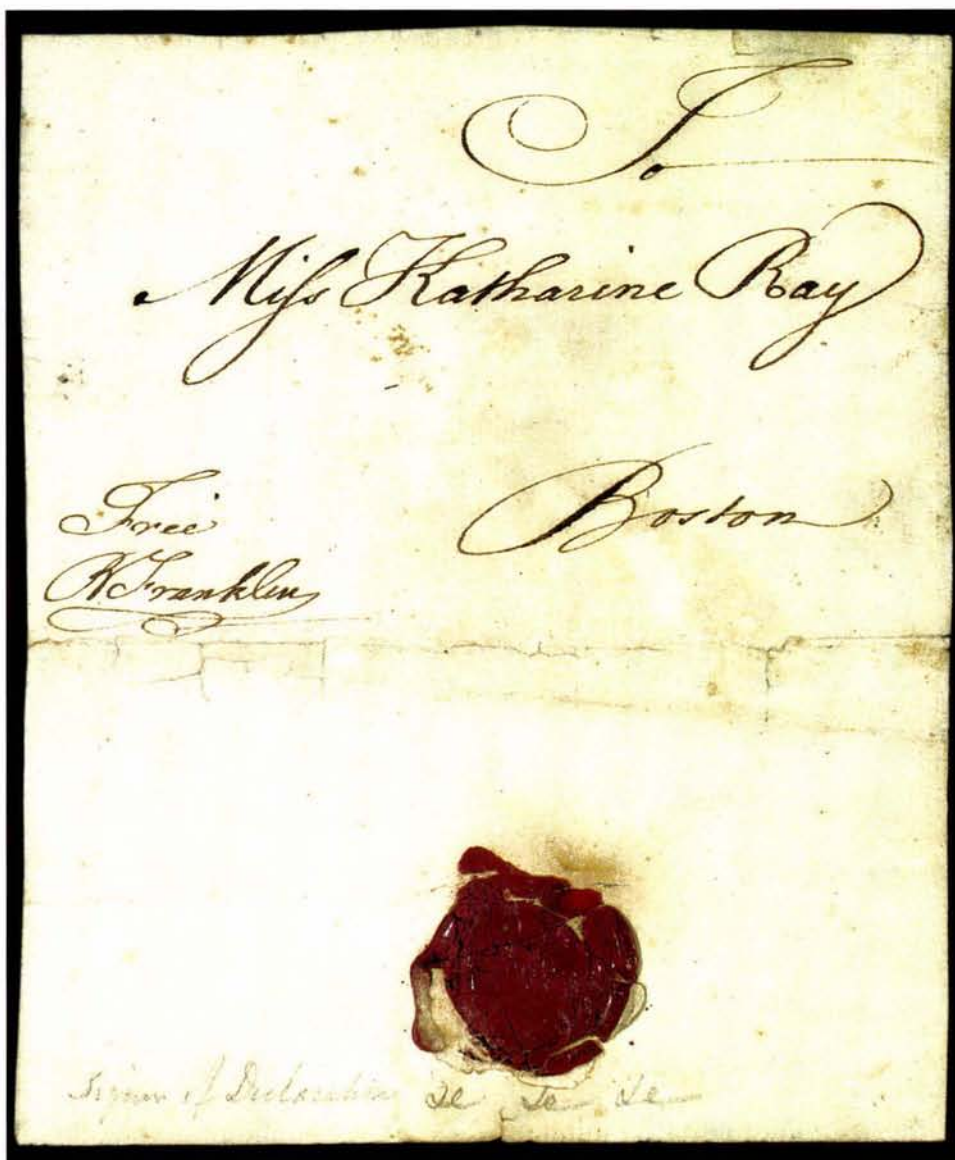 To
Miſs Katharine Ray
Boston
Free
B Franklin
Signer of Declaration &c &c &c